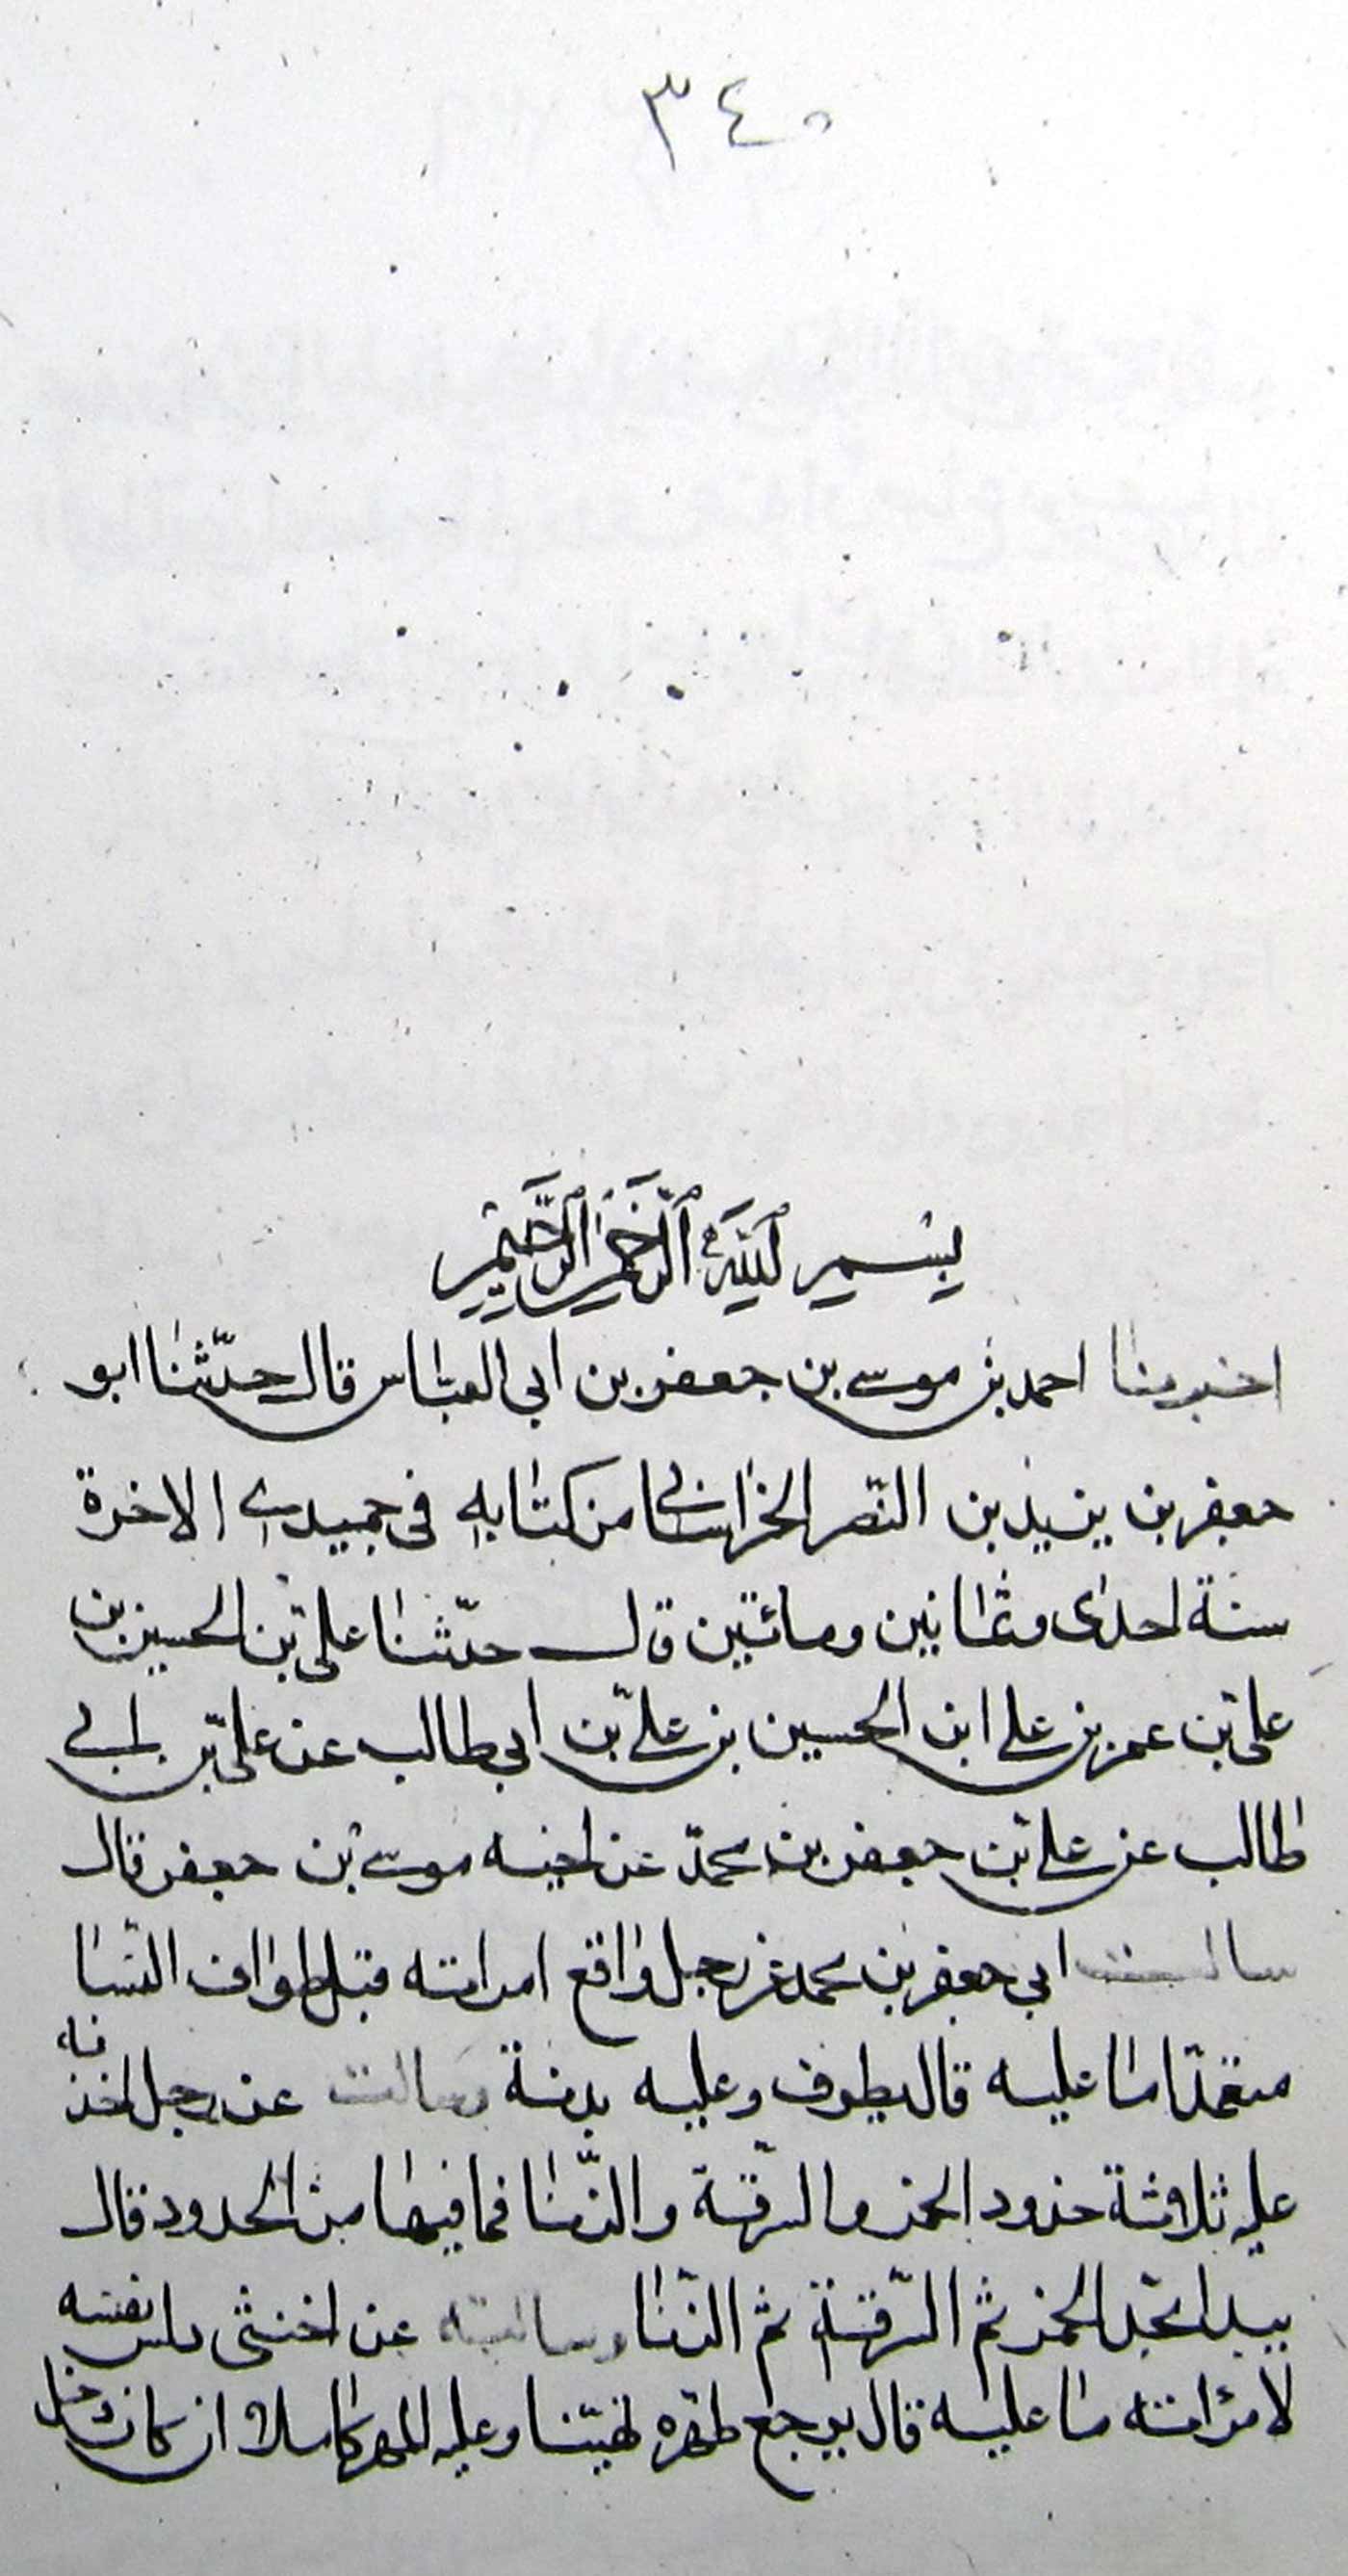 ٣٤٠
بسم الله الرحمن الرحيم
اخبرنا احمد بن موسى بن جعفر بن ابي العباس قال حدّثنا ابو
جعفر بن يزيد بن النصر الخراساني من كتابه في جميدى الاخرة
سنة احدى وثمانين ومائتين قال حدّثنا على بن الحسين بن
على بن عمر بن على ابن الحسين بن علىّ بن ابي طالب عن علىّ بن ابي
طالب عن علىّ بن جعفر بن محمّد عن اخيه موسى بن جعفر قال
سالت ابي جعفر بن محمد عن رجل واقع امراته قبل طواف النّسا
متعمّدا ما عليه قال يطوف وعليه بدنة وسالت عن رجل اخذ
عليه ثلاثة حدود الخمر والسّرقة والزّنا فما فيها من الحدود قال
يبدا بحدّ الخمر ثم السّرقة ثم الزّنا وسالته عن اخنثى دلس نفسه
لامرأته ما عليه قال يوجع ظهره وعليه المهر كاملا ان كان دخل